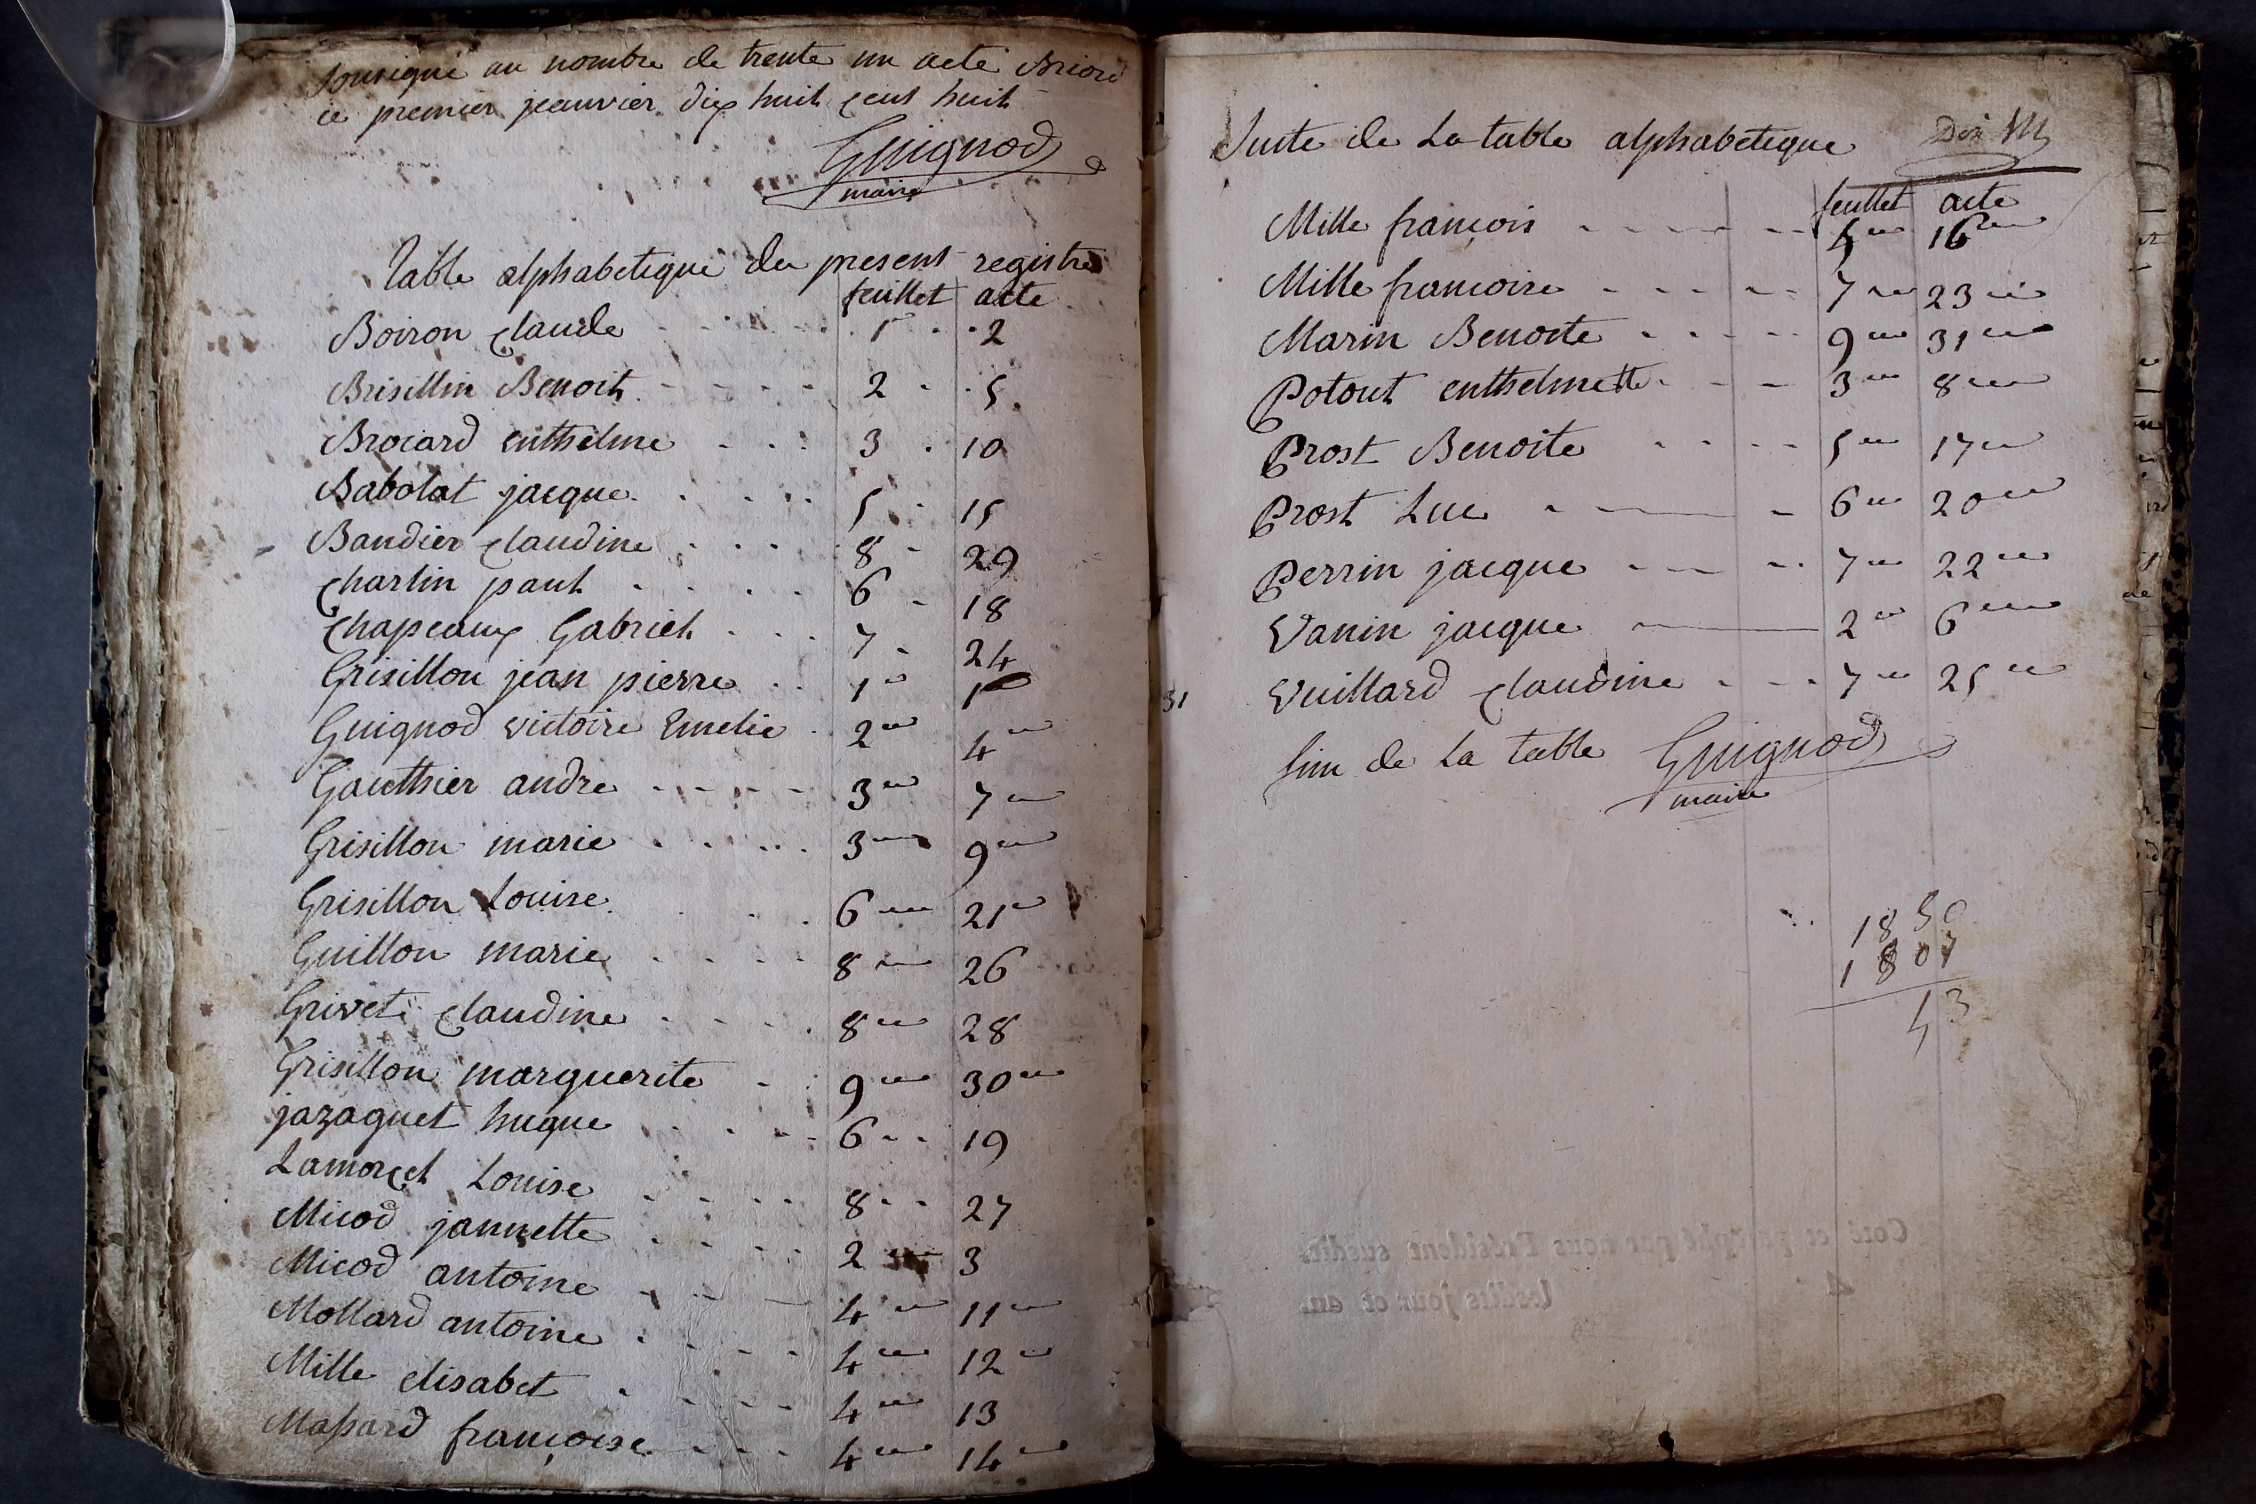 sousigné au nombre de trente un acte Briord
ce premier jeanvier dix huit cent huit
Guignod
maire
Table alphabetique du present registre
feuillet acte
Boiron claude 1 2
Brisillin Benoit 2 5
Brocard enthelme 3 10
Babolat jacque 5 15
Bandier claudine 8 29
Charlin paul 6 18
Chapeaux Gabriel 7 24
Grisillon jean pierre 1er 1er
Guignod victoire Emelie 2me 4me
Gauthier andre 3me 7me
Grisillon marie 3me 9me
Grisillon Louise 6me 21me
Guillon marie 8me 26
Grivet claudine 8me 28
Grisillon marguerite 9me 30me
jazaguet hugue 6 19
Lamorcel Louise 8 27
Micod jannette 2 3
Micod antoine 4me 11me
Mollard antoine 4me 12me
Mille elisabet 4me 13
Massard françoise 4me 14me
Suite de La table alphabetique
feuillet acte
Mille françois 5me 16me
Mille francoise 7me 23me
Marin Benoite 9me 31me
Potout enthelmette 3me 8me
Prost Benoite 5me 17me
Prost Luc 6me 20me
Perrin jacque 7me 22me
Vanin jacque 2me 6me
31 Vuillard claudine 7me 25me
fin de La table Guignod
maire
1850
1807
43
Coté et paraphé par nous Président susdit
lesdits jour et an.